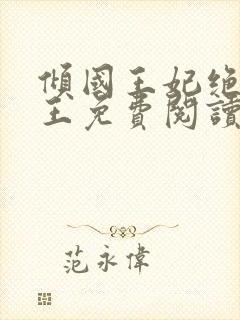 傾國王妃绝
王免費閱讀
范永偉